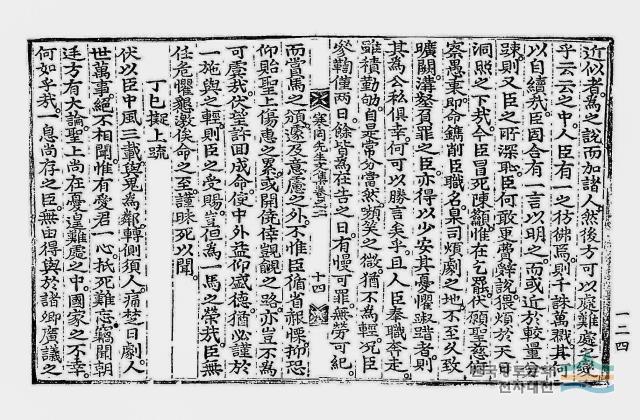 近似者爲之說而加諸人然後方可以處難處之變
乎云云之中人臣有一之彷佛焉則千誅萬戮其可
以自續哉臣固合有一言以明之而或近於較量分
踈則又臣之所深耻臣何敢更費辭說猥煩於天日
洞照之下哉今臣冒死陳籲惟在乞罷伏願聖慈
察愚衷卽命鐫削臣職名臬司煩劇之地不至久致
曠闕溝壑負罪之臣亦得以少安其憂懼踧踖者則
其爲公私俱幸何可以勝言矣乎且人臣奉職奔走
雖積勤劬自是常分當然嚬笑之微猶不爲輕况臣
參鞫僅兩日餘皆爲在告之日有慢可罪無勞可紀
寒岡先生文集卷之二
十四
而嘗馬之頒遽及意慮之外不惟臣循省報慄抑恐
仰貽聖上傷惠之累或開僥倖覬覦之路亦豈不爲
可虞哉伏望許回成命使中外益仰盛德猶必謹於
一施與之輕則臣之受賜豈但爲一馬之榮哉臣無
任危懼懇激俟命之至謹昧死以聞
丁巳擬上疏
伏以臣中風三載與鬼爲鄰轉側須人痛楚日劇人
世萬事絕不相關惟有愛君一心抵死難忘竊聞朝
廷方有大論聖上尙在憂遑難處之中國家之不幸
何如乎哉一息尙存之臣無由得與於諸卿廣議之
一二四
전자대전